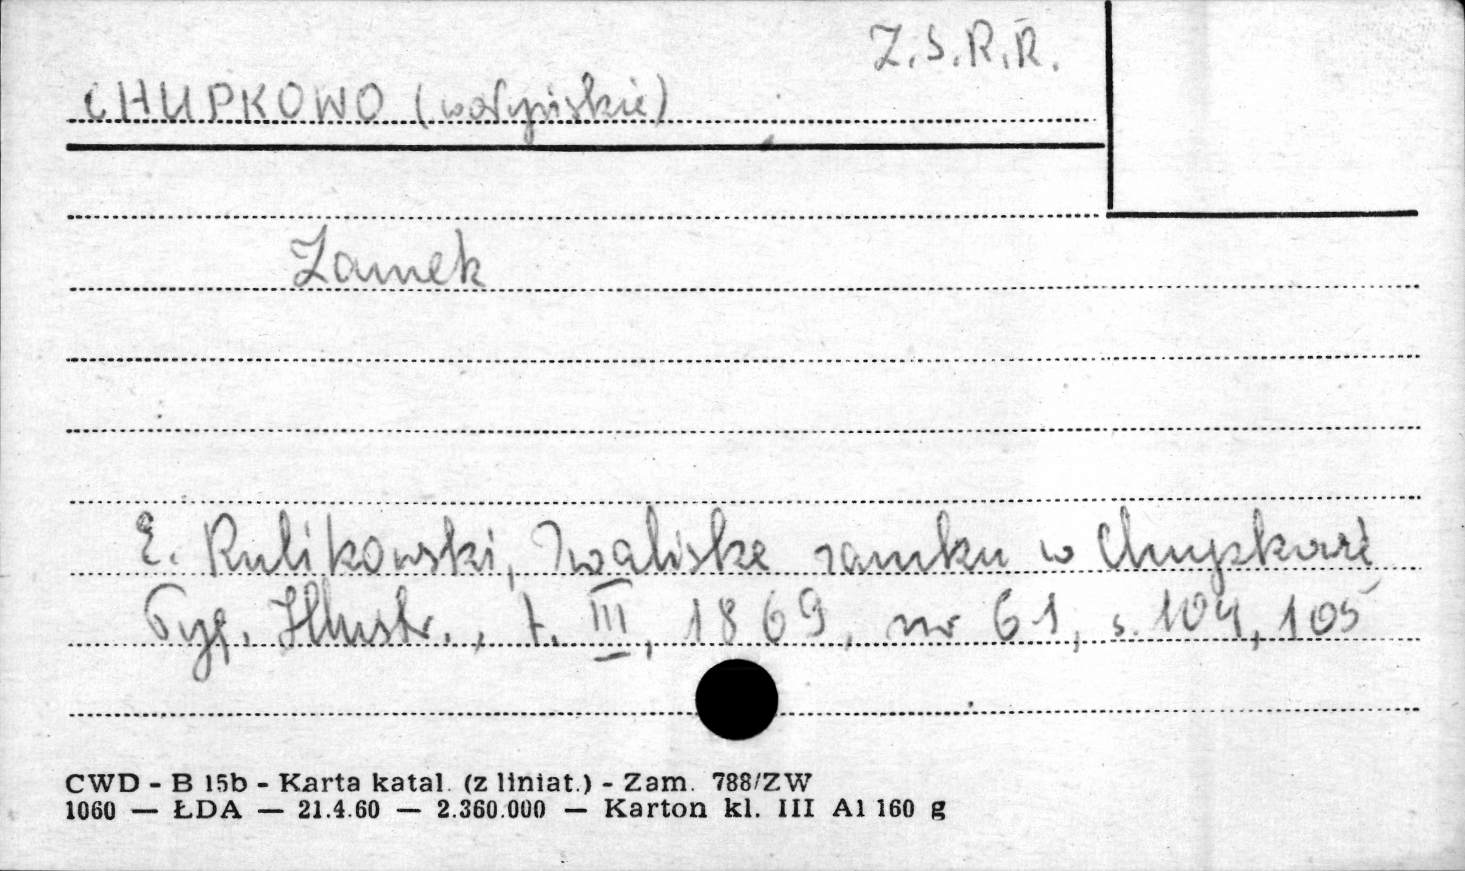 Z.S.R.R.
CHUPKOWO (wołyńskie)
Zamek
E. Rulikowski, Zwaliska zamku w Chupkowie
Tyg. Illustr., t. III, 1869, nr 61, s. 104, 105
CWD - B 15b - Karta katal. (z liniat.) - Zam. 788/ZW
1060 — ŁDA — 21.4.60 — 2.360.000 — Karton kl. III A1 160 g